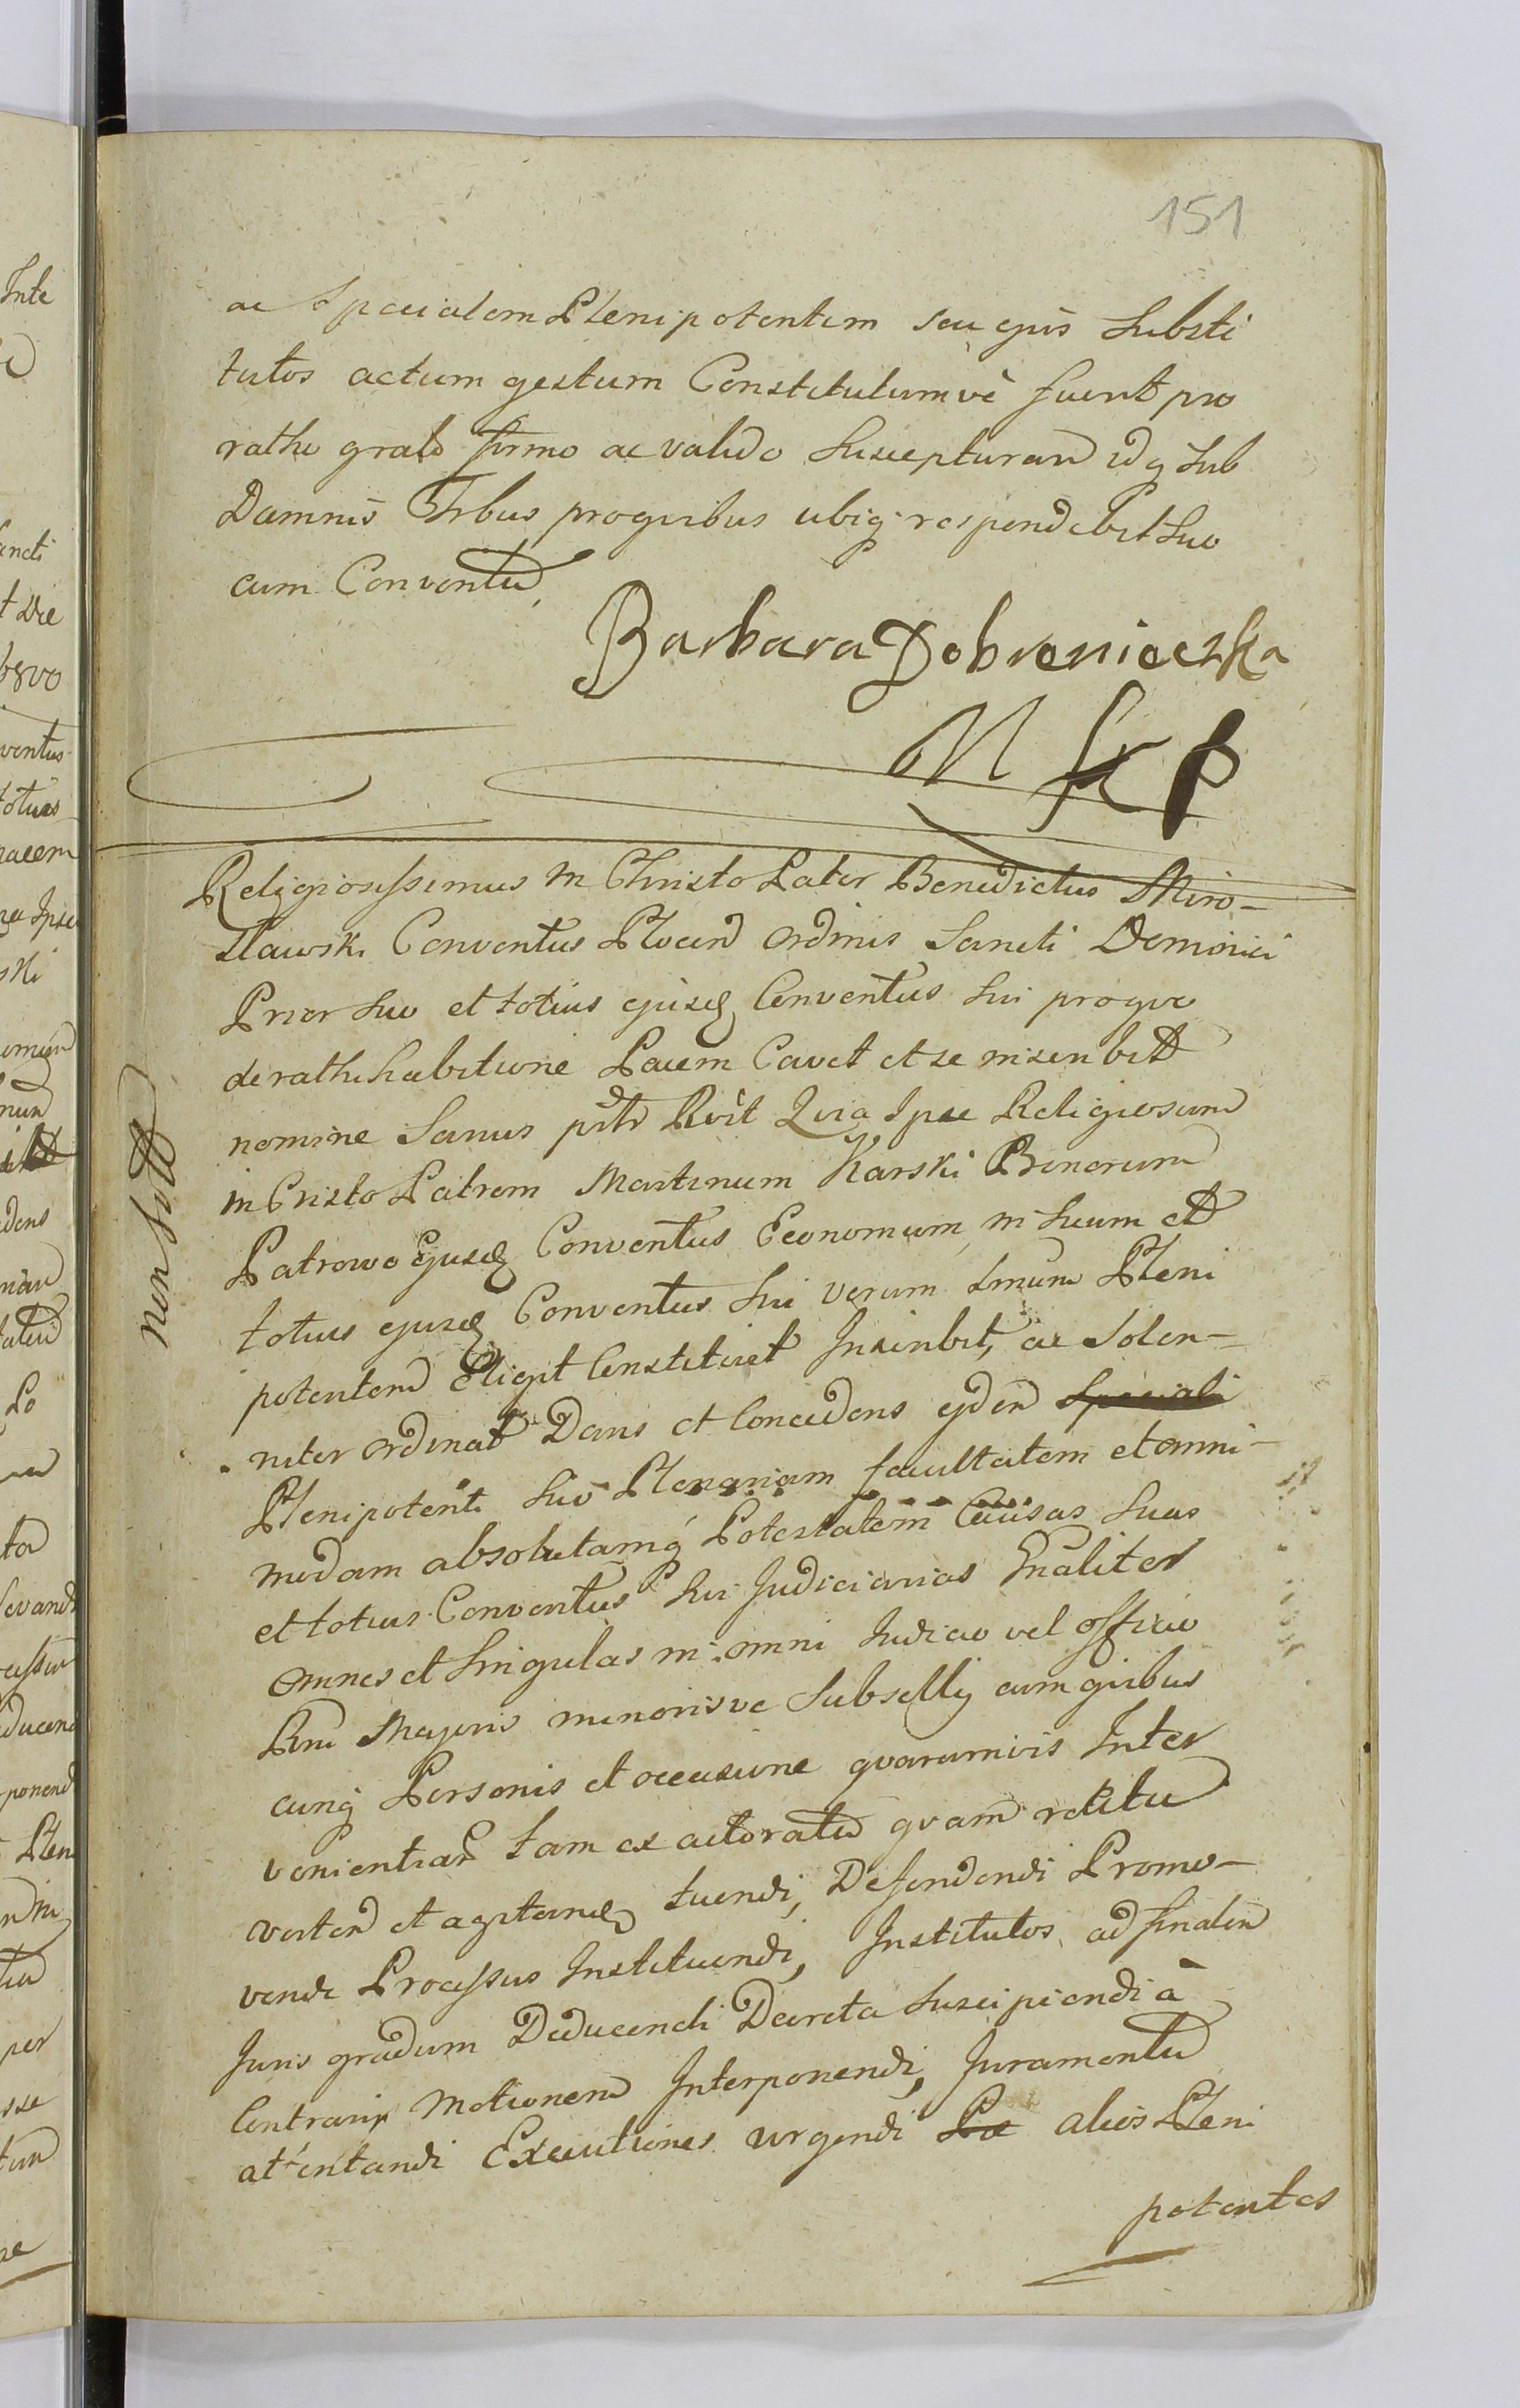 151
ac Specialem Plenipotentem seu ejus Substi
tutos actum gestum Constitutumve fuerit pro
ratho grato firmo ac valido Suscepturam idq Sub
Damnis Trbus proqvibus ubiq respondebit Suo
cum Conventu
Barbara Dobrzeniecka
M K P
Religiosissimus in Christo Pater Benedictus Miro-
sławski Conventus Plocen Ordinis Sancti Dominici
Prior Suo et totius ejusd Conventus Sui proqvo
de rathihabitione Pacem Cavet et se inscribit
nomine Sanus pntr Rvit Quia Ipse Religiosum
in Cristo Patrem Martinum Karski Bonorum
Patrowo Ejusd Conventus Economum in Suum et
totius ejusd Conventus Sui verum Lmum Pleni
potentem Eligit Constituit Inscribit, ac Solen-
niter Ordinat Dans et Concedens ejdem Speciali
Plenipotenti Suo Plenariam facultatem et omni-
modam absolutamq Potestatem Causas Suas
et totius Conventus Sui Judiciarias Gnaliter
Omnes et Singulas in omni Judicio vel Officio
Rni Majoris minorisve Subsellij cum qvibus
cunq Personis et occasione qvarumvis Inter
venientian tam ex actoratu qvam retitu
verten et agitand tuendi, Defendendi Promo-
vendi Processus Instituendi, Institutos ad finalem
Juris gradum Deducendi Decreta Suscipiendi à
Contrarijs Motionem Interponendi, Juramentu
attentandi Executiones urgendi Po alios Pleni
potentes
non sttt
Inte
ncti
t Die
ventus
totius
pacem
Ipse
ski
dens
Po
ta
ducen
ponend
Plen
per
sse